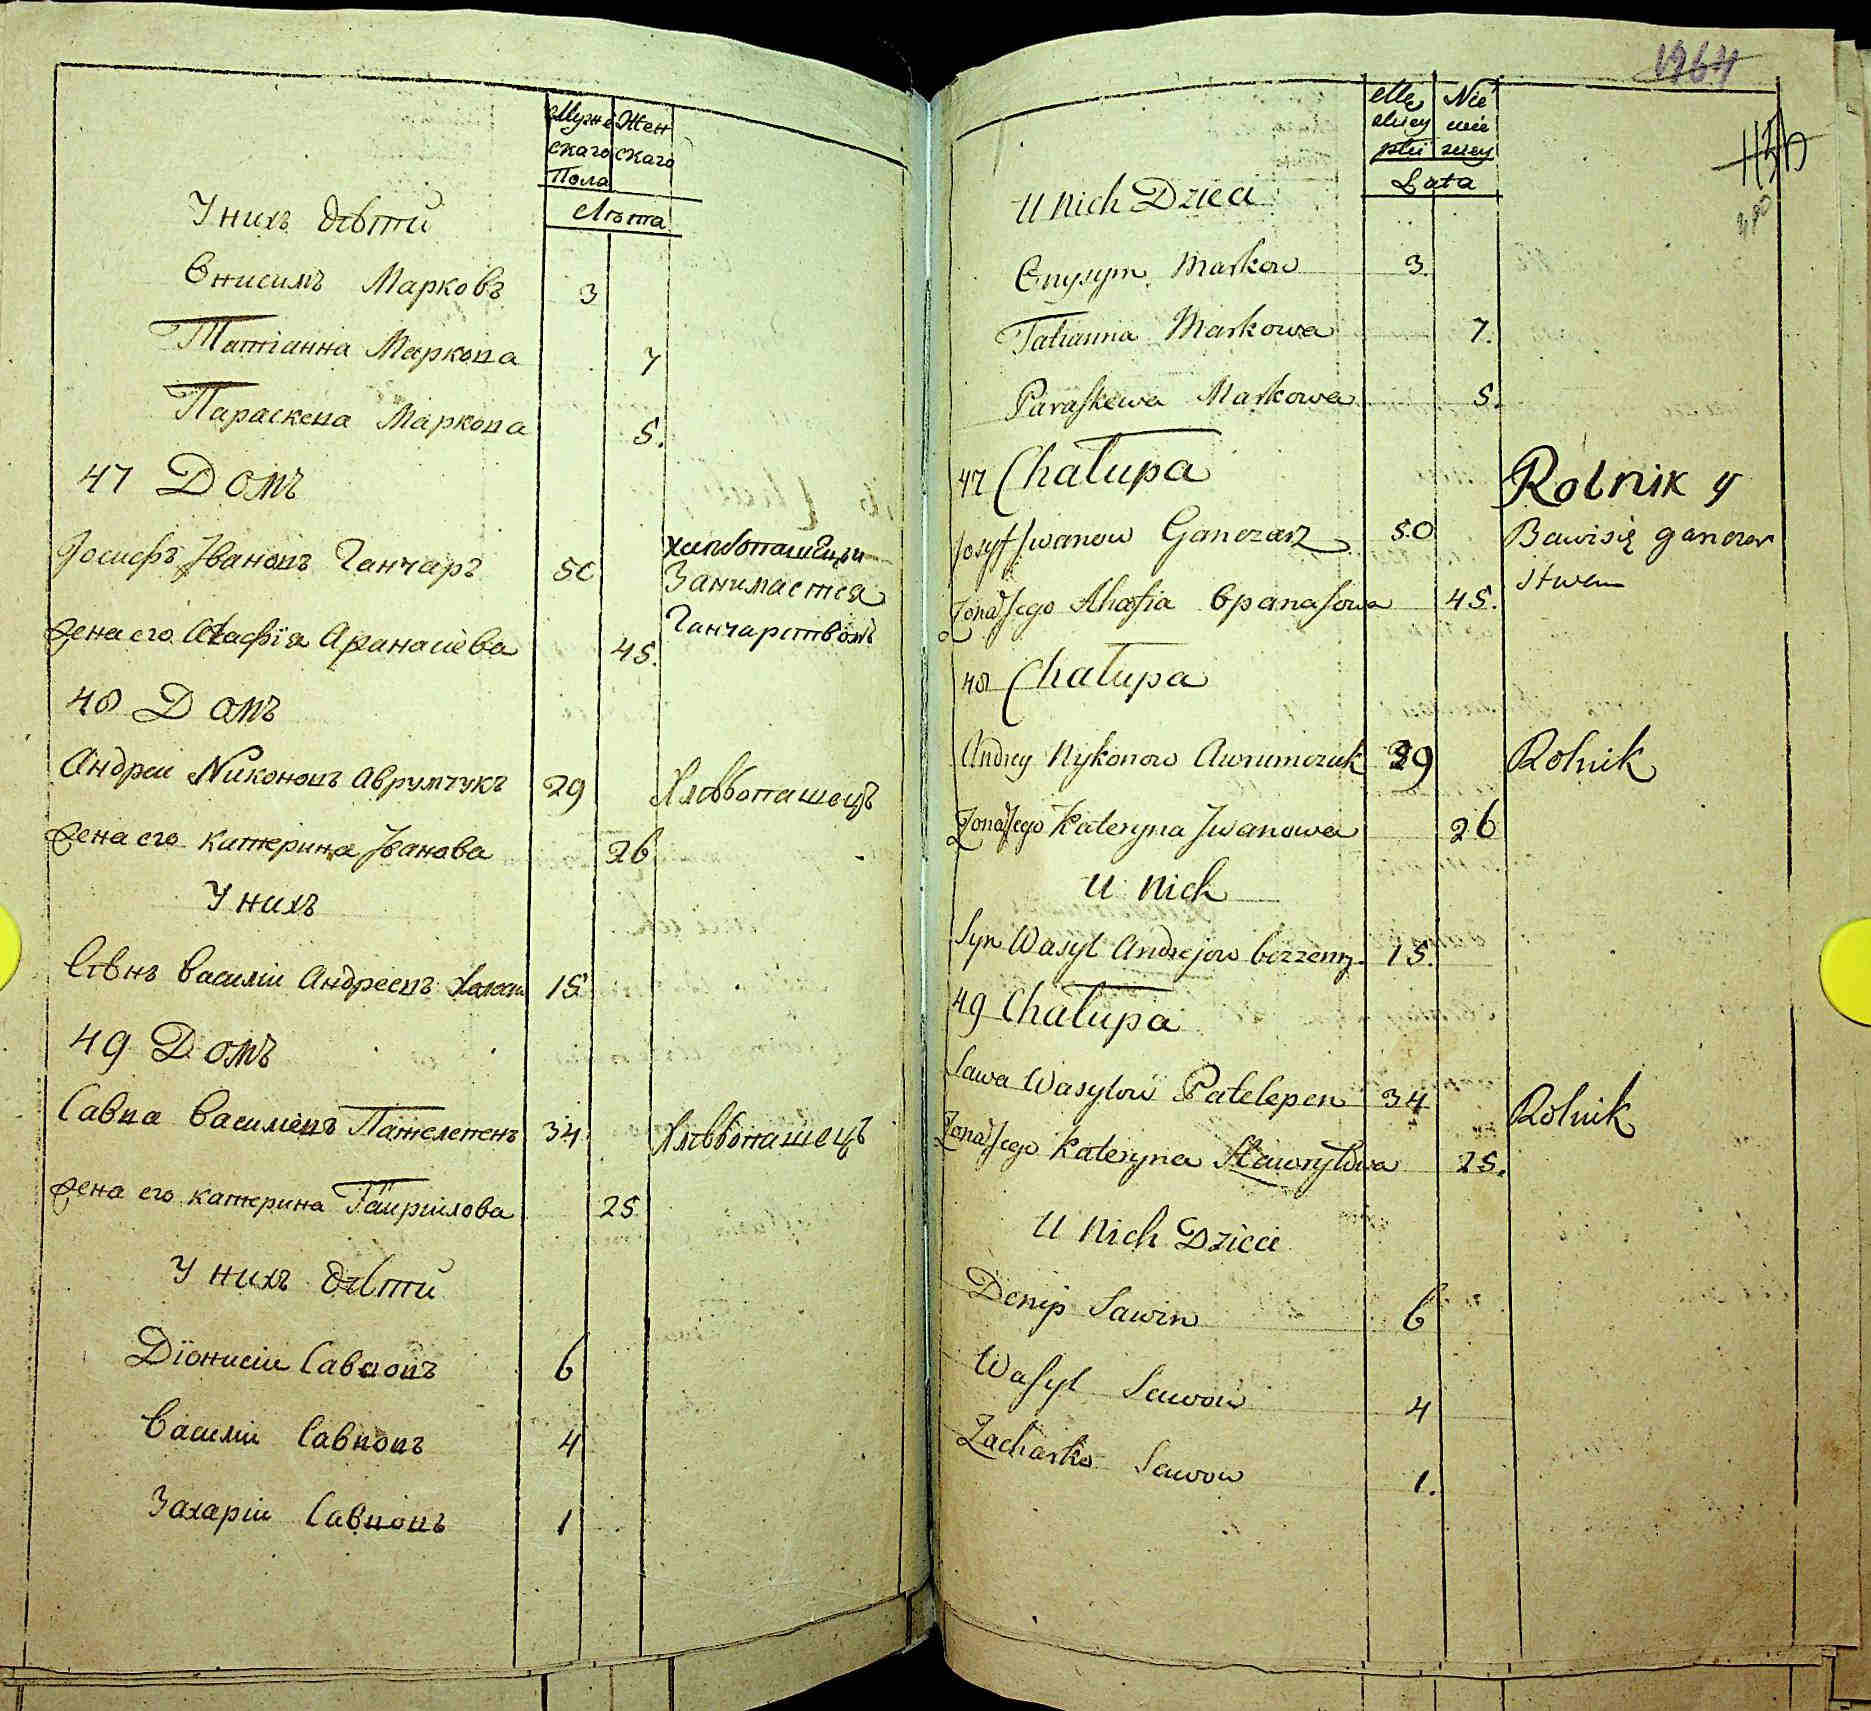 Мужескаго Пола
Женскаго
Лѣта
У нихъ дѣти
Онисимъ Марковъ 3
Татіанна Маркова 7
Параскева Маркова 5.
47 Домъ
Іосифъ Івановъ Ганчаръ 50
Занимается
Ганчарствомъ
Жена его Агафія Афанасіева 45.
48 Домъ
Андреи Никоновъ Аврумчукъ 29 Хлѣбопашецъ
Жена его Катерина Іванова 26
У нихъ
Сынъ Василіи Андреевъ 15
49 Домъ
Савва Василіевъ Пателепенъ 34 Хлѣбопашецъ
Жена его Катерина Гавріилова 25
У нихъ дѣти
Діонисіи Саввовъ 6
Василіи Саввовъ 4
Захаріи Саввовъ 1
1964
Męskiey płci
Niewieściey
Lata
U nich Dzieci
Onysym Markow 3.
Tatianna Markowa 7.
Paraskewa Markowa 5.
47 Chałupa
Rolnik y
Josyf Jwanow Ganczarz 50
Bawi się ganczar
stwem
Żona Jego Ahafia Opanasowa 45.
48 Chałupa
Andrey Nykonow Awrumczuk 29 Rolnik
Żona Jego Kateryna Jwanowa 26
U nich
Syn Wasyl Andrejow bezżenny 15.
49 Chałupa
Sawa Wasylow Patelepen 34 Rolnik
Żona Jego Kateryna Hawryłowa 25.
U nich Dzieci
Denis Sawin 6
Wasyl Sawow 4
Zacharko Sawow 1.